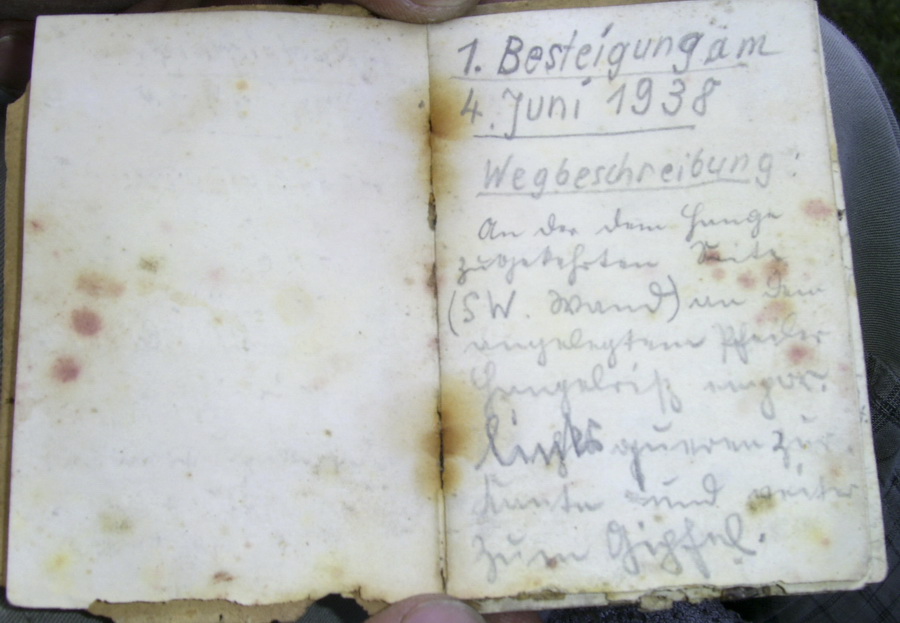 1. Besteigung am
4. Juni 1938
Wegbeschreibung:
An der dem Hange
zugekehrten Seite
(SW. Wand) an dem
angelegtem Pfeiler
empor.
links queren zur
Kante und weiter
zum Gipfel.